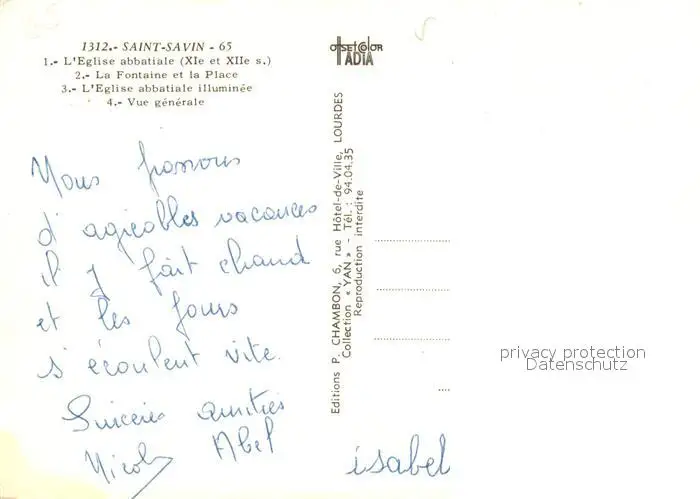 1312.- SAINT-SAVIN - 65
1.- L'Eglise abbatiale (XIe et XIIe s.)
2.- La Fontaine et la Place
3.- L'Eglise abbatiale illuminée
4.- Vue générale
OFFSET COLOR
ADIA
Nous passons
d'agréables vacances
il y fait chaud
et les jours
s'écoulent vite.
Sincères amitiés
Nicole Abel
isabel
Editions P. CHAMBON, 6, rue Hôtel-de-Ville, LOURDES
Collection « YAN » - Tél. : 94.04.35
Reproduction interdite
privacy protection
Datenschutz